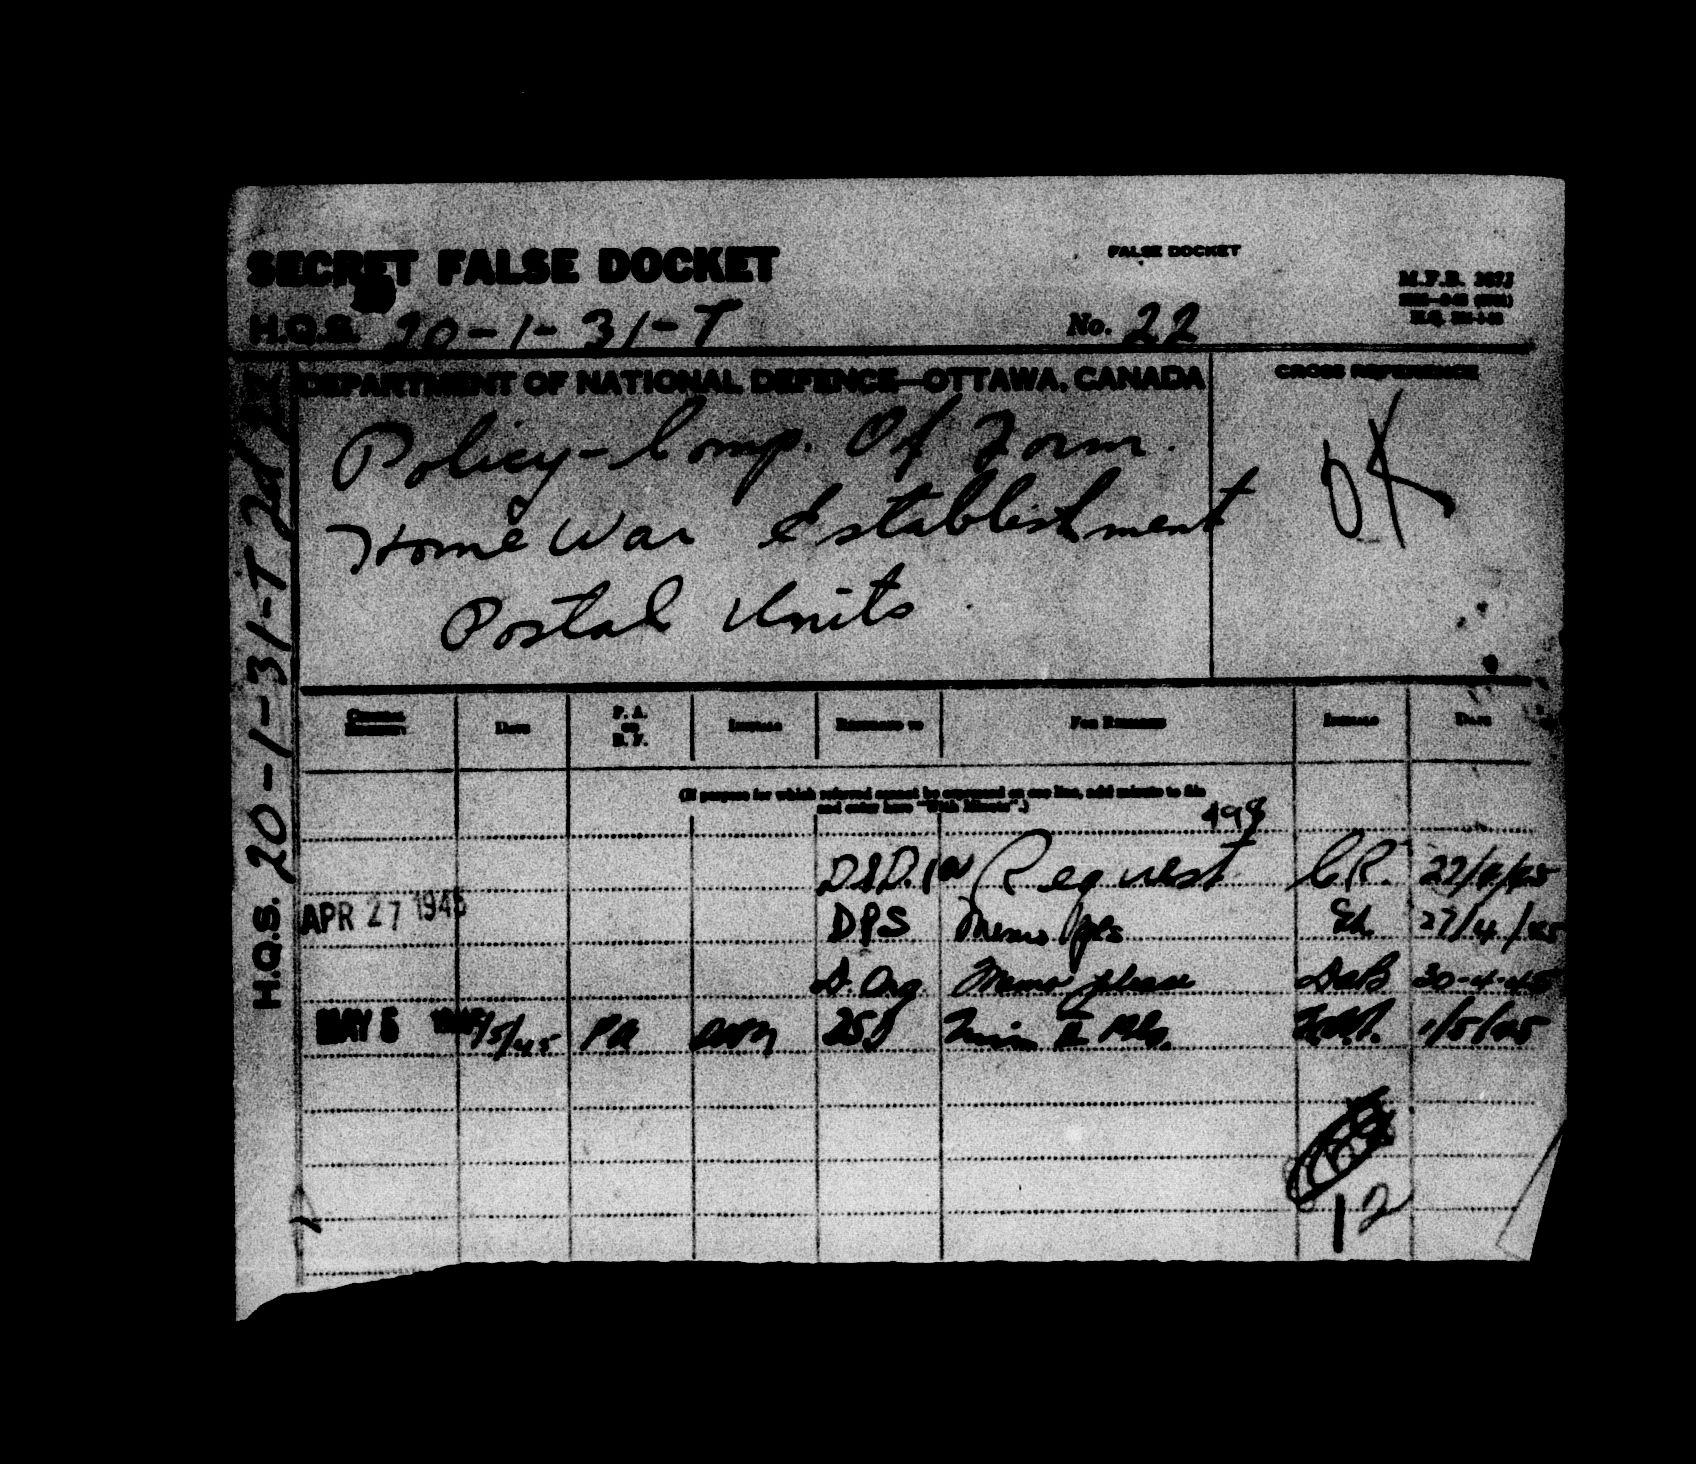 SECRET FALSE DOCKET
FALSE DOCKET
H.Q.S. 20-1-31-T
No. 22
DEPARTMENT OF NATIONAL DEFENCE—OTTAWA, CANADA
CROSS REFERENCE
Policy-Comp. Of Form.
Home War Establishment
Postal Units
OK
H.Q.S. 20-1-31-T
DATE P. A. OR B. F. INITIALS REFERRED TO FOR REMARKS INITIALS DATE
(If purpose for which referred cannot be expressed on one line, add minute to file
and enter here "With Minute".)
498
Request C.R. 27/4/45
APR 27 1945 DPS Memo pls 27/4/45
D. Org. Memo please 30-4-45
MAY 5 1945 PA 1/5/45
12